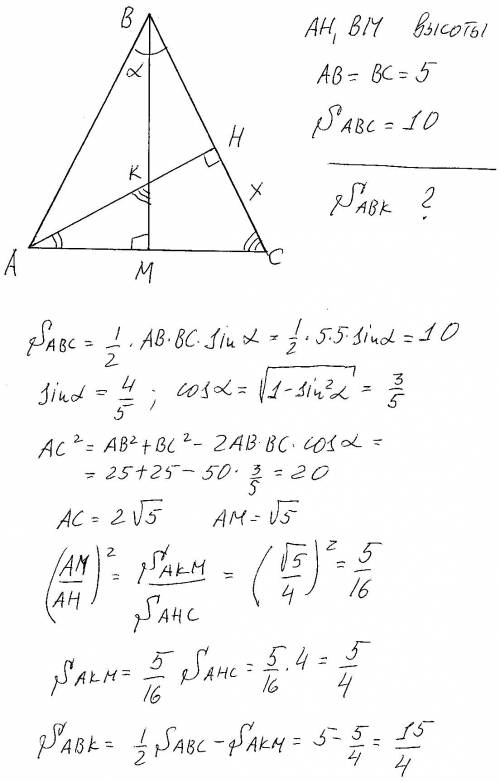 B
α
H
K
x
A
M
C
AH, BM высоты
AB = BC = 5
S_ABC = 10
S_ABK ?
S_ABC = 1/2 · AB · BC · sin α = 1/2 · 5 · 5 · sin α = 10
sin α = 4/5 ; cos α = √(1 - sin² α) = 3/5
AC² = AB² + BC² - 2AB · BC · cos α =
= 25 + 25 - 50 · 3/5 = 20
AC = 2√5 AM = √5
(AM/AH)² = S_AKM/S_AHC = (√5/4)² = 5/16
S_AKM = 5/16 S_AHC = 5/16 · 4 = 5/4
S_ABK = 1/2 S_ABC - S_AKM = 5 - 5/4 = 15/4